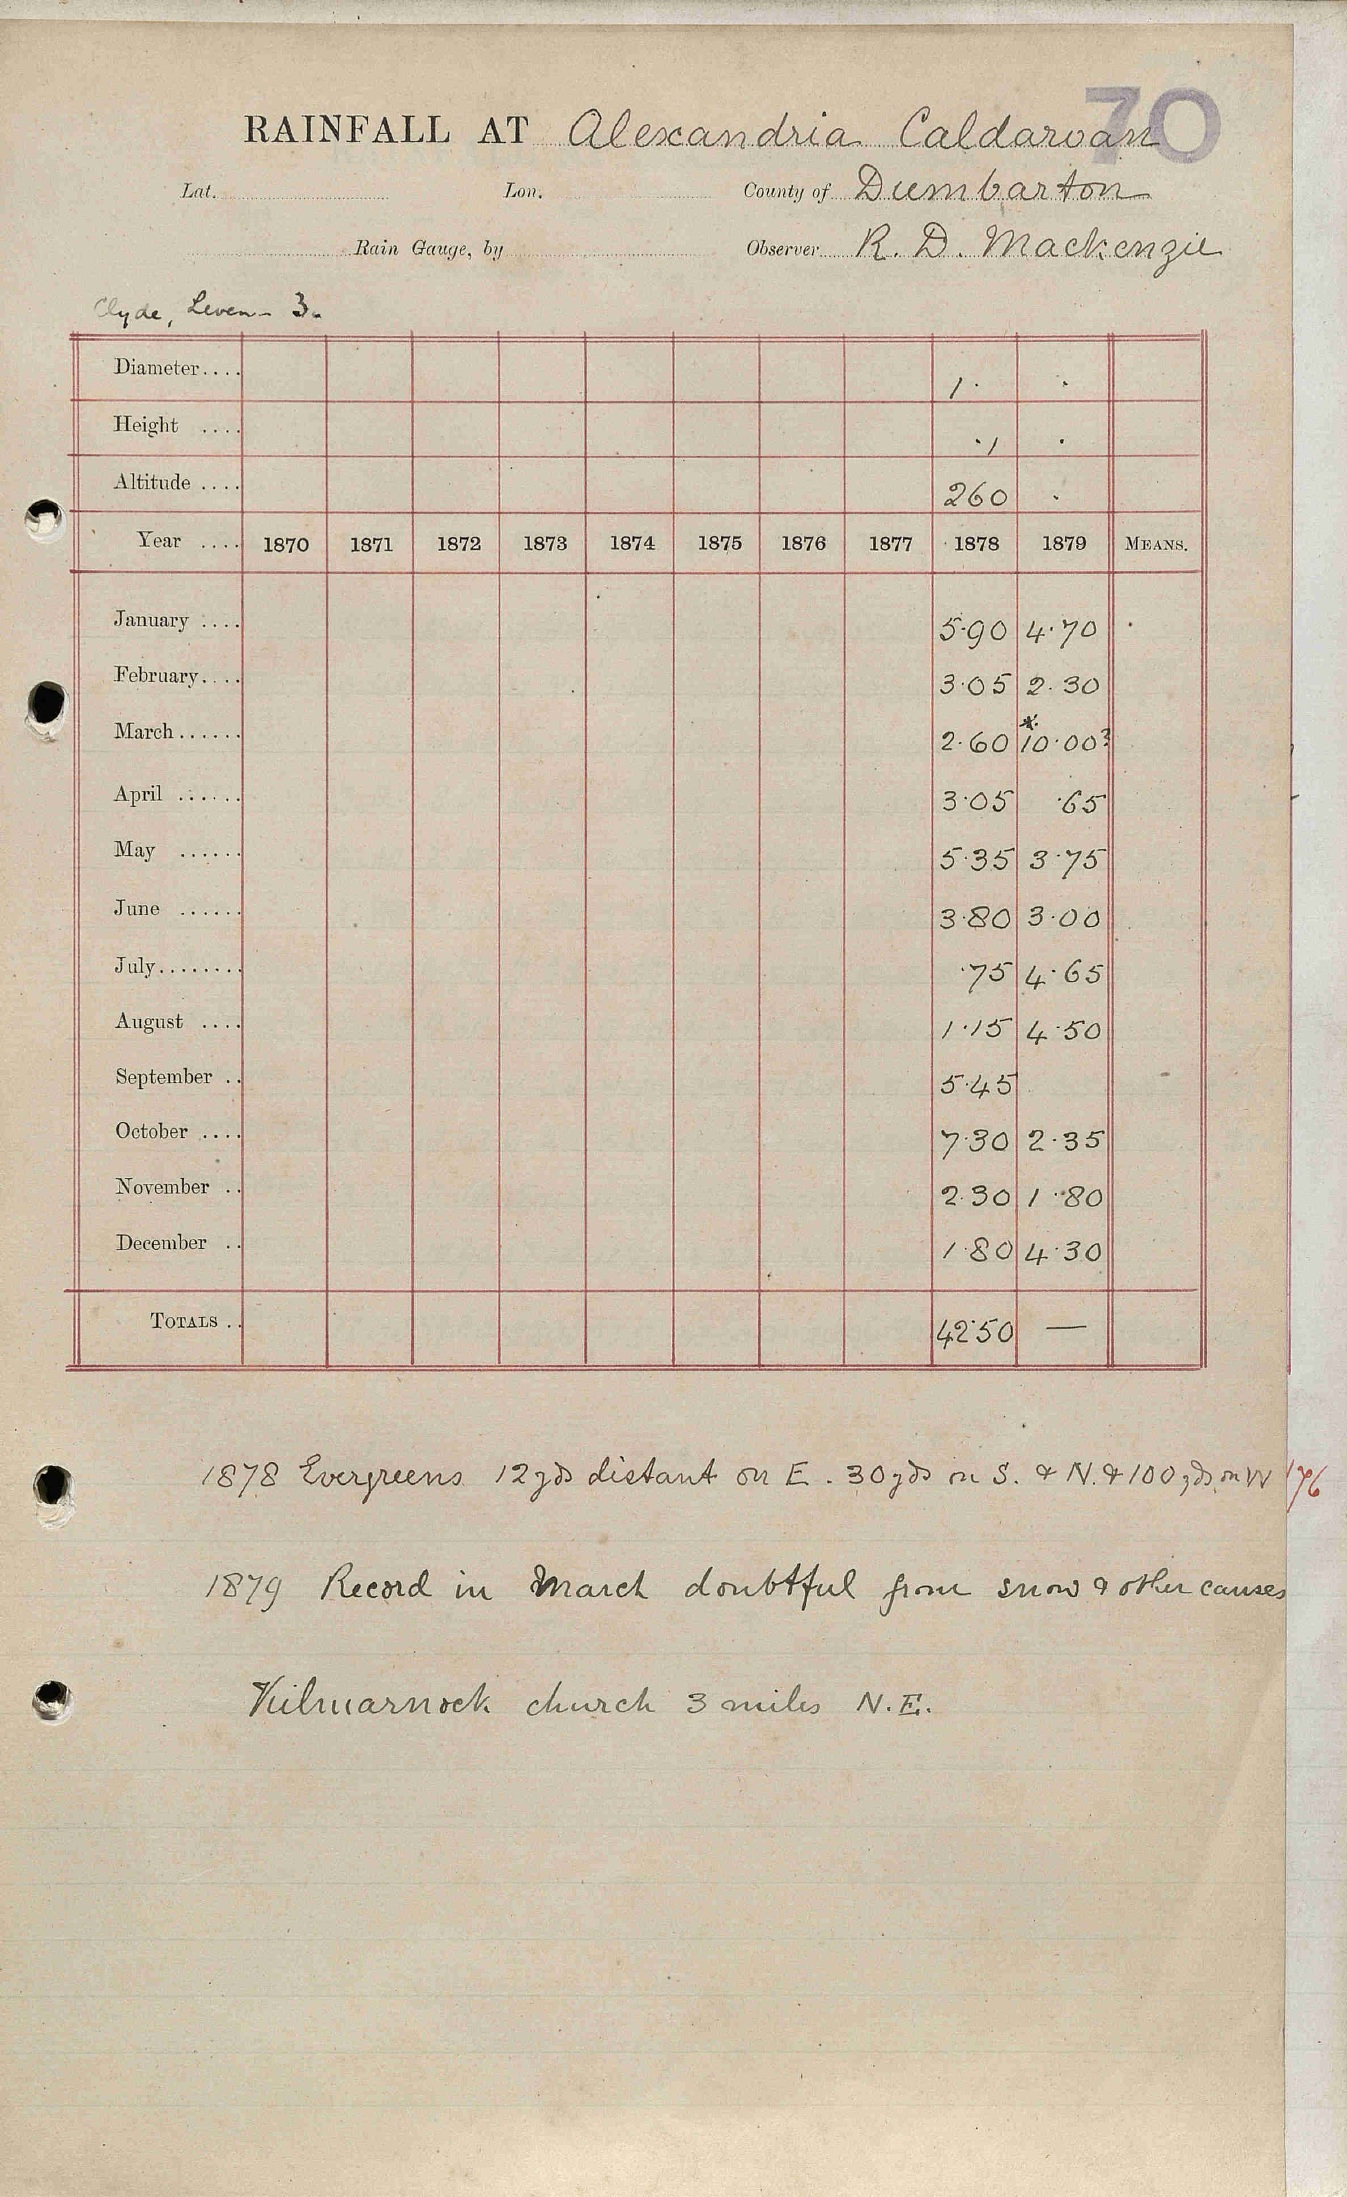 70
RAINFALL AT Alexandria Caldarvan
Lat. Lon. County of Dumbarton
Rain Gauge, by Observer R. D. Mackenzie
Clyde, Leven - 3.
Diameter.... 1· ·
Height .... ·1 ·
Altitude .... 260 ·
Year .... 1870 1871 1872 1873 1874 1875 1876 1877 1878 1879 MEANS.
January .... 5·90 4·70
February.... 3·05 2·30
March...... 2·60 *10·00?
April ...... 3·05 ·65
May ...... 5·35 3·75
June ...... 3·80 3·00
July........ ·75 4·65
August .... 1·15 4·50
September .. 5·45
October .... 7·30 2·35
November .. 2·30 1·80
December .. 1·80 4·30
TOTALS .. 42·50 —
1878 Evergreens 12 yds distant on E. 30 yds on S. & N. & 100 yds on W
1879 Record in March doubtful from snow & other causes
Kilmarnock church 3 miles N.E.